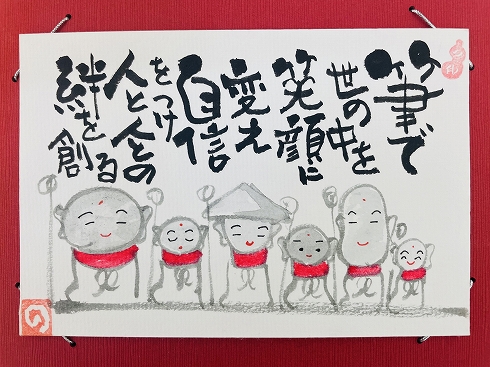 筆で
世の中を
笑顔に
変え
自信
をつけ
人と人との
絆を創る
の